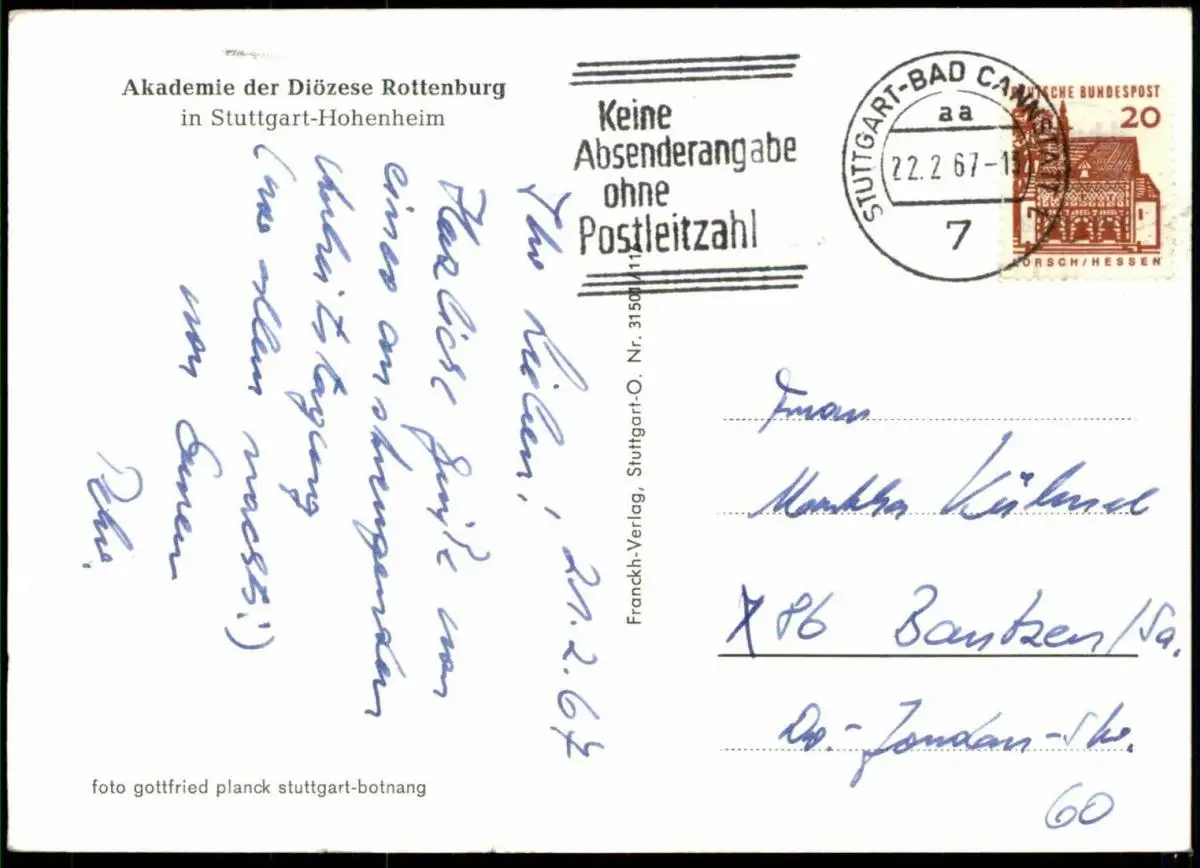 Akademie der Diözese Rottenburg
in Stuttgart-Hohenheim
Keine
Absenderangabe
ohne
Postleitzahl
STUTTGART-BAD CANNSTATT 2
aa
22.2.67-1
7
DEUTSCHE BUNDESPOST
20
LORSCH/HESSEN
Ihr Lieben, 21.2.67
Herzliche Grüße von
einer anstrengenden
Arbeitstagung
(vor allem nachts!)
von Eurem
Franckh-Verlag, Stuttgart-O. Nr. 31501/11
Frau
Martha
X 86 Bautzen/Sa.
Dr.-Jordan-Str.
60
foto gottfried planck stuttgart-botnang